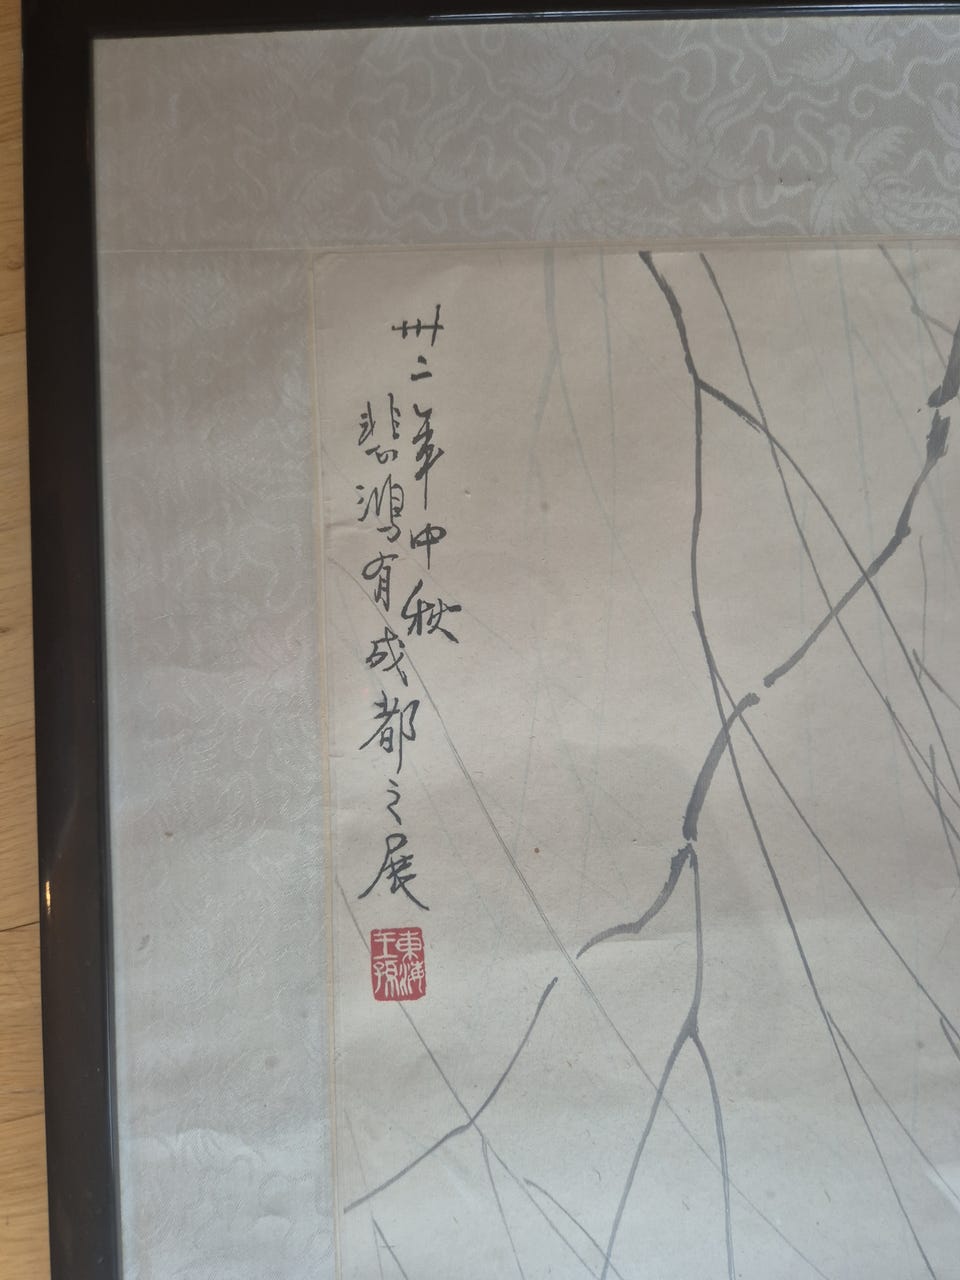 卅二年中秋
悲鴻有成都之展
東海王孫